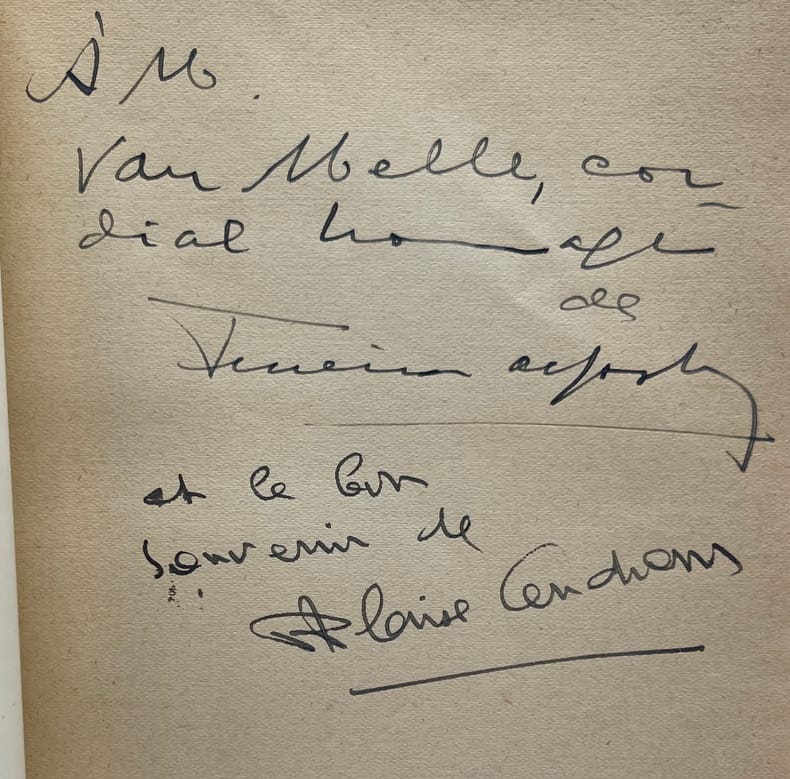 À M.
Van Melle, cor-
dial hommage
de
Ferreira de Castro
et le bon
souvenir de
Blaise Cendrars